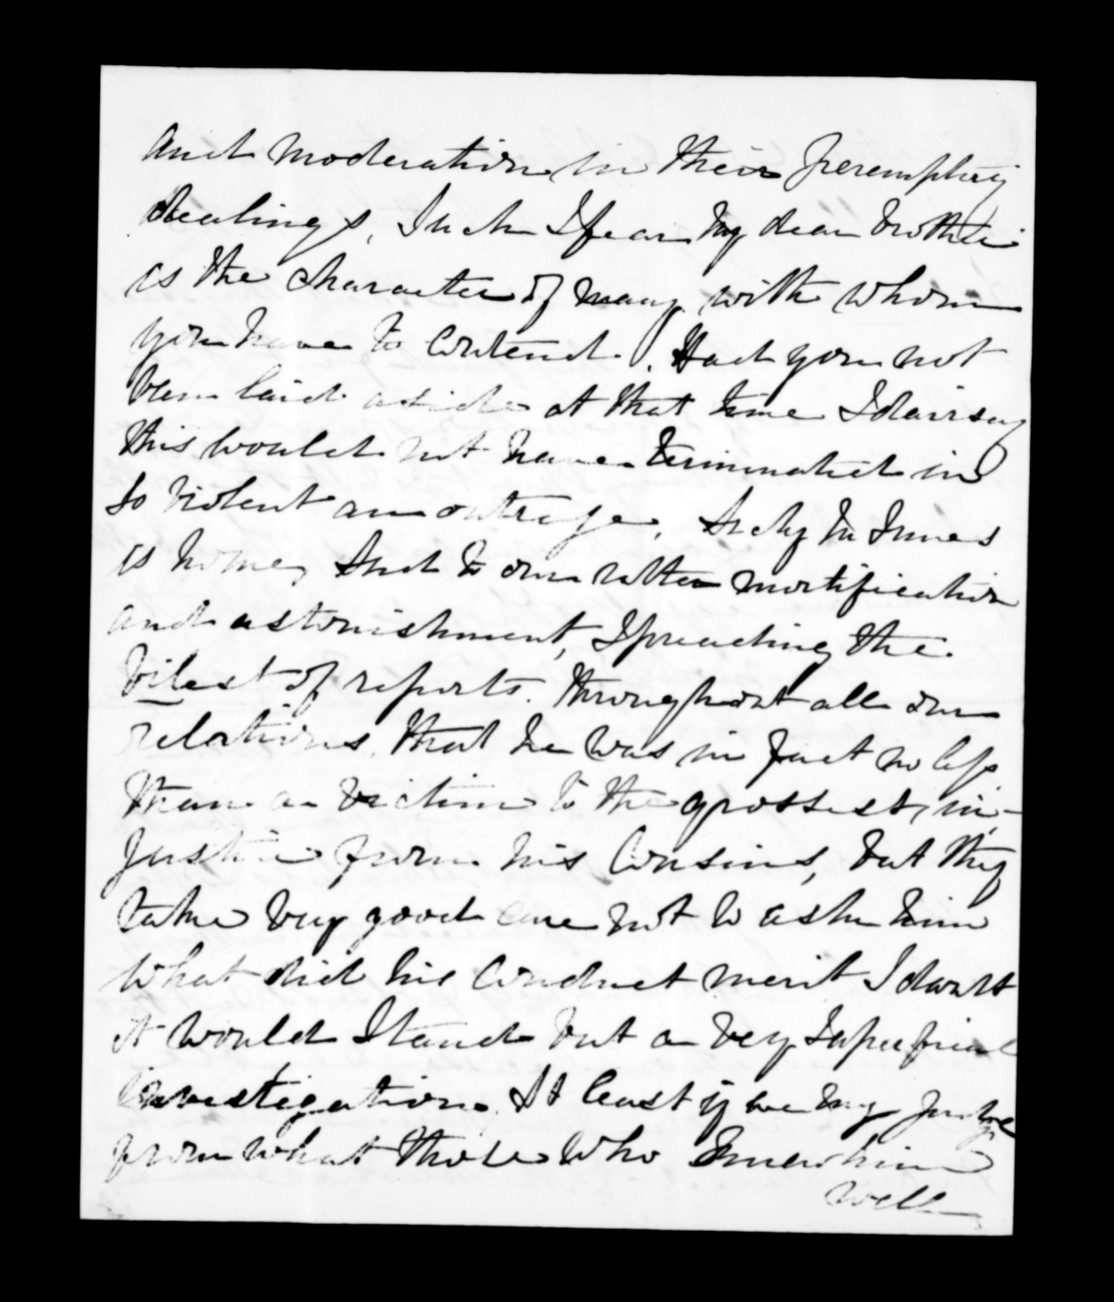 and moderation in their peremptory
dealings. Such I fear my dear brother
is the character of many with whom
you have to contend. Had you not
been laid aside at that time I dair say
this would not have terminated in
so violent an outrage. Archy McInnes
is home, And to our utter mortification
and astonishment, Spreading the
vilest of reports throughout all our
relations, that he was in fact no less
than a victim to the grossest, in-
justice from his Cousins, but they
take very good care not to ask him
what did his conduct merit I doubt
it would Stand but a very superficial
investigation. At least if we may judge
from what those who knew him
well